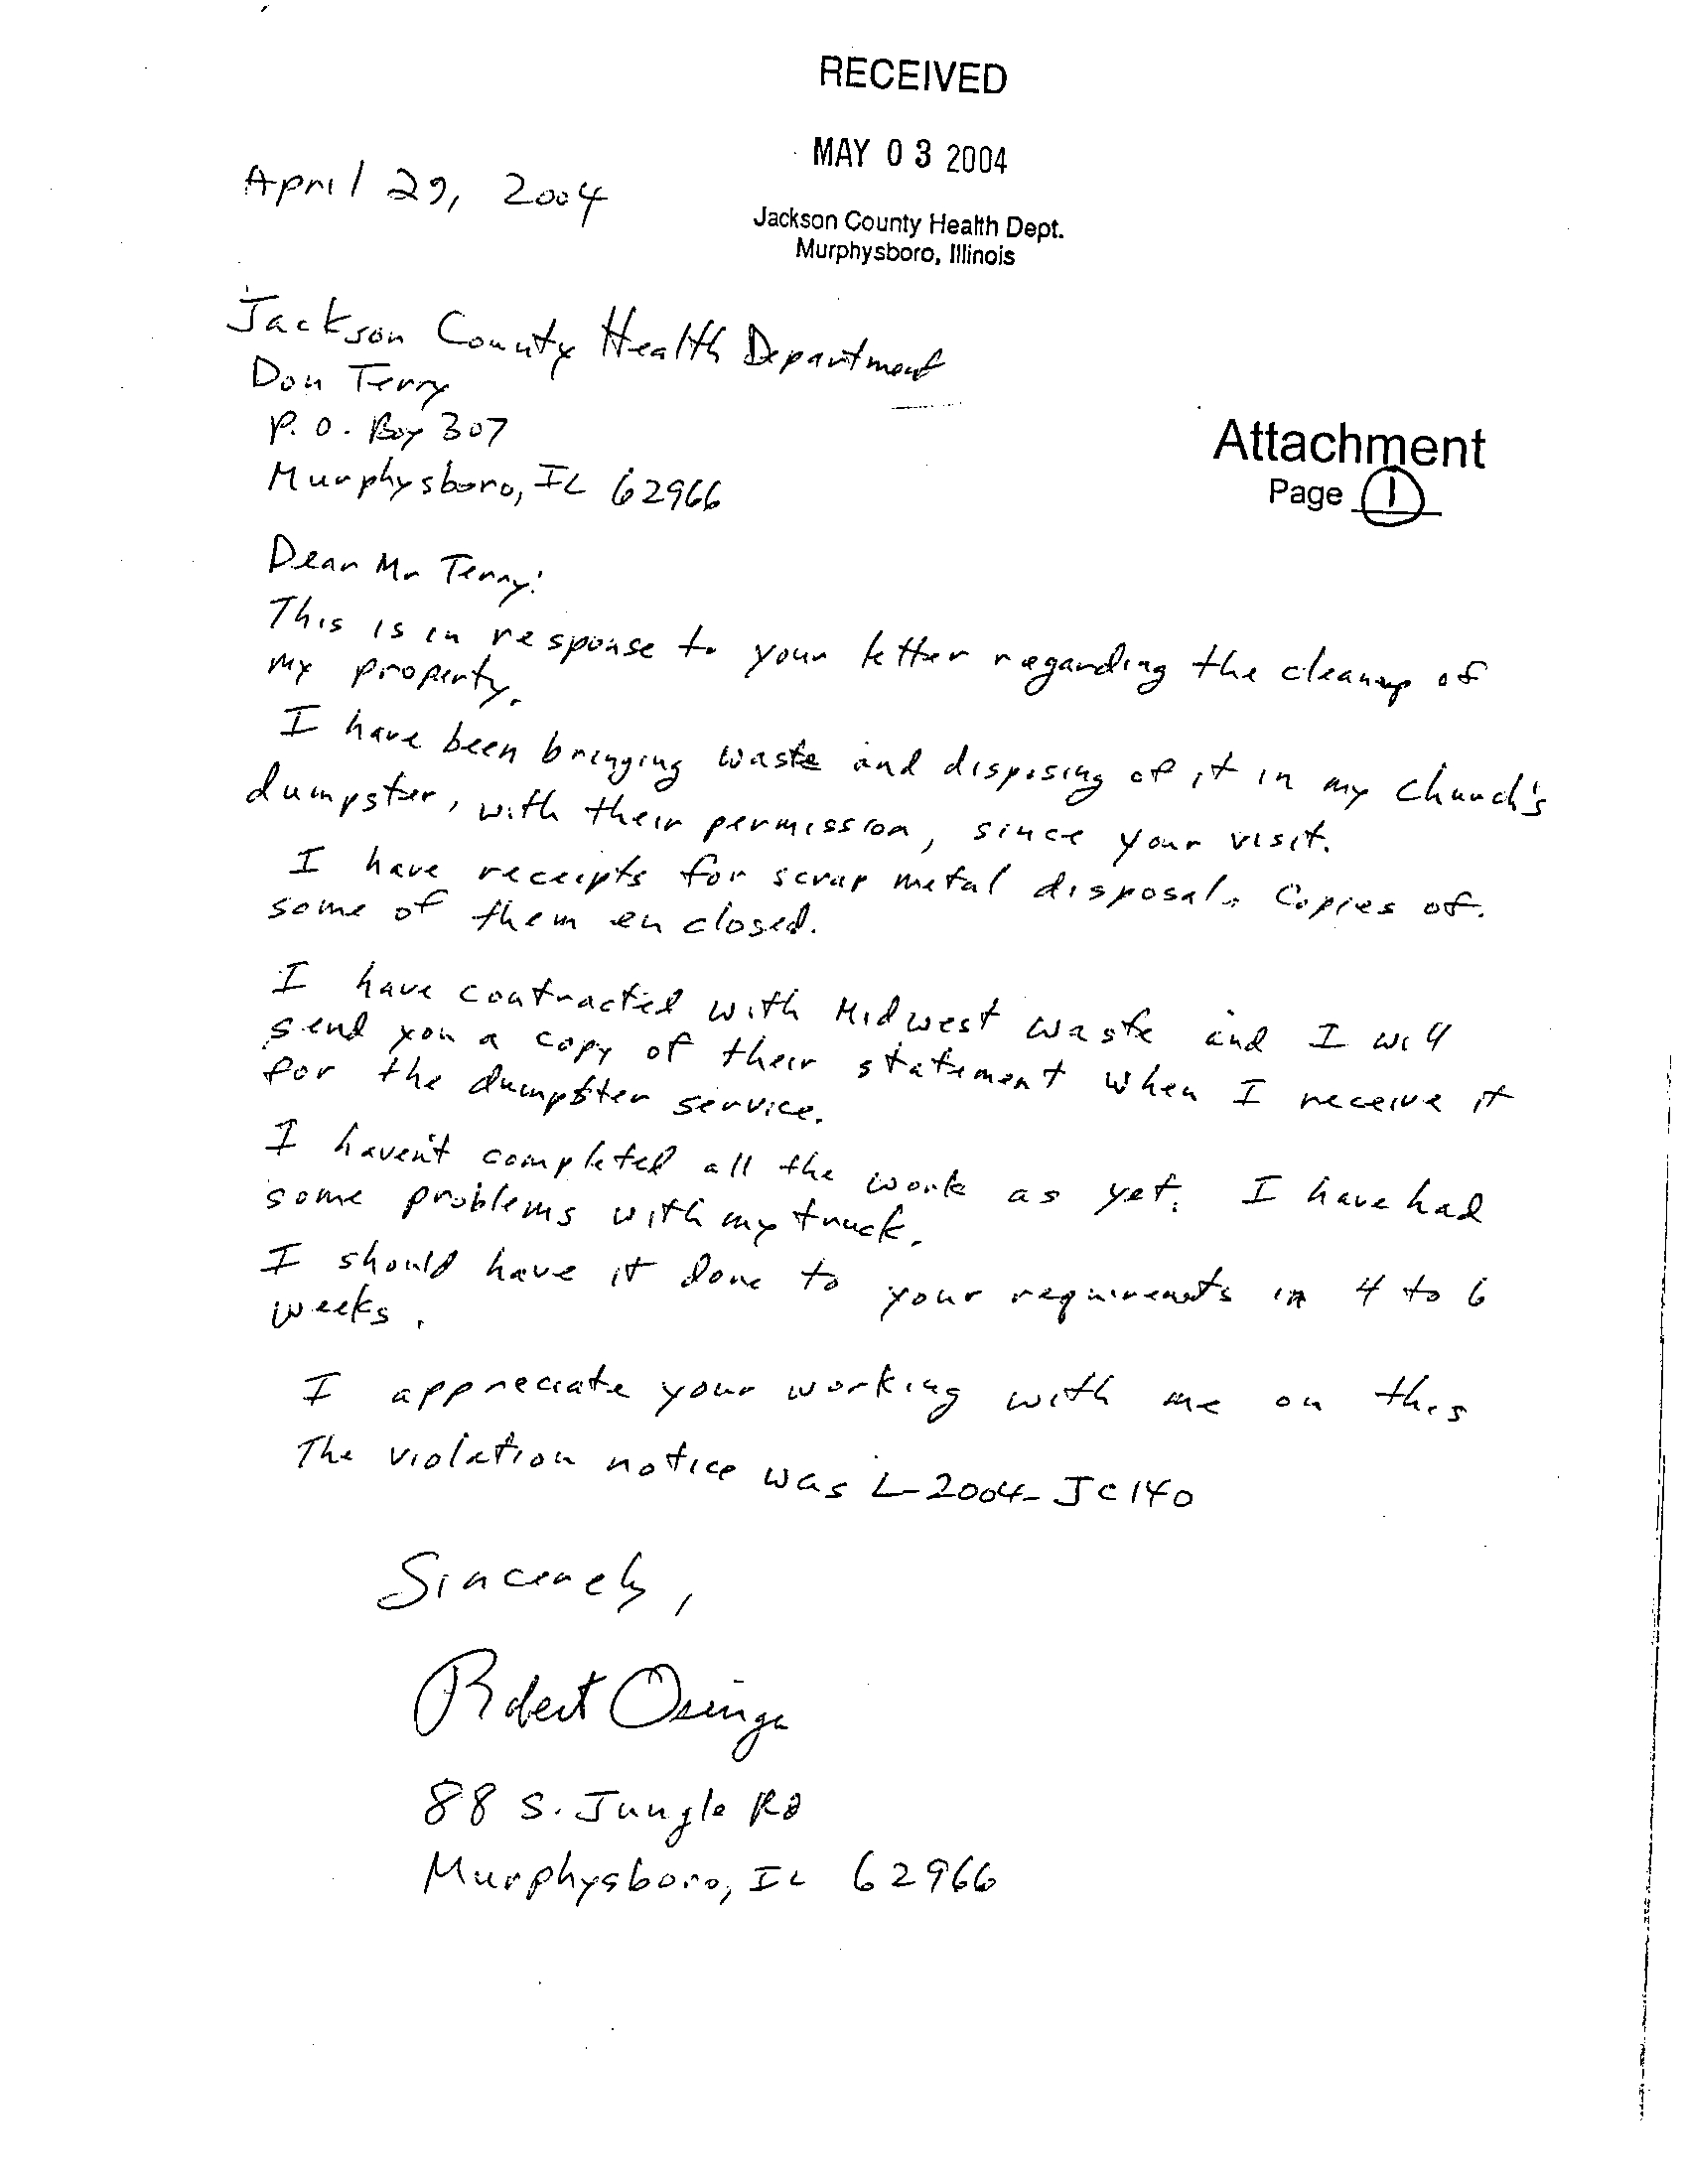 RECEIVED
MAY 03 2004
Jackson County Health Dept.
Murphysboro, Illinois
April 29, 2004
Jackson County Health Department
Don Terry
P.O. Box 307
Murphysboro, IL 62966
Attachment
Page 1
Dear Mr Terry:
This is in response to your letter regarding the cleanup of
my property.
I have been bringing waste and disposing of it in my church's
dumpster, with their permission, since your visit.
I have receipts for scrap metal disposal. Copies of
some of them enclosed.
I have contracted with Midwest Waste and I will
send you a copy of their statement when I receive it
for the dumpster service.
I haven't completed all the work as yet. I have had
some problems with my truck.
I should have it done to your requirements in 4 to 6
weeks.
I appreciate your working with me on this
The violation notice was L-2004-JC140
Sincerely,
Robert Osinga
88 S. Jungle Rd
Murphysboro, IL 62966